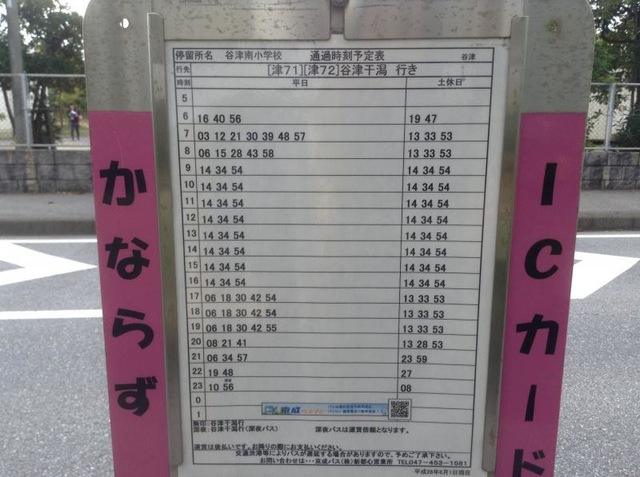 停留所名 谷津南小学校 通過時刻予定表 谷津
行先 [津71][津72]谷津干潟 行き
時刻 平日 土休日
5
6 16 40 56 19 47
7 03 12 21 30 39 48 57 13 33 53
8 06 15 28 43 58 13 33 53
9 14 34 54 14 34 54
10 14 34 54 14 34 54
11 14 34 54 14 34 54
12 14 34 54 14 34 54
13 14 34 54 14 34 54
14 14 34 54 14 34 54
15 14 34 54 14 34 54
16 14 34 54 14 34 54
17 06 18 30 42 54 13 33 53
18 06 18 30 42 54 13 33 53
19 06 18 30 42 55 13 33 53
20 08 21 41 13 28 53
21 06 34 57 23 59
22 19 48 27
23 10 56 08
0
1
無印:谷津干潟行
深夜:谷津干潟行(深夜バス) 深夜バスは運賃倍額となります。
運賃は後払いです。お降りの際にお支払いください。
交通渋滞等によりバスが遅延する場合がありますので、予めご了承下さい。
お問い合わせは・・・京成バス(株)新都心営業所 TEL047-453-1581
平成28年6月1日現在
かならず
ICカード